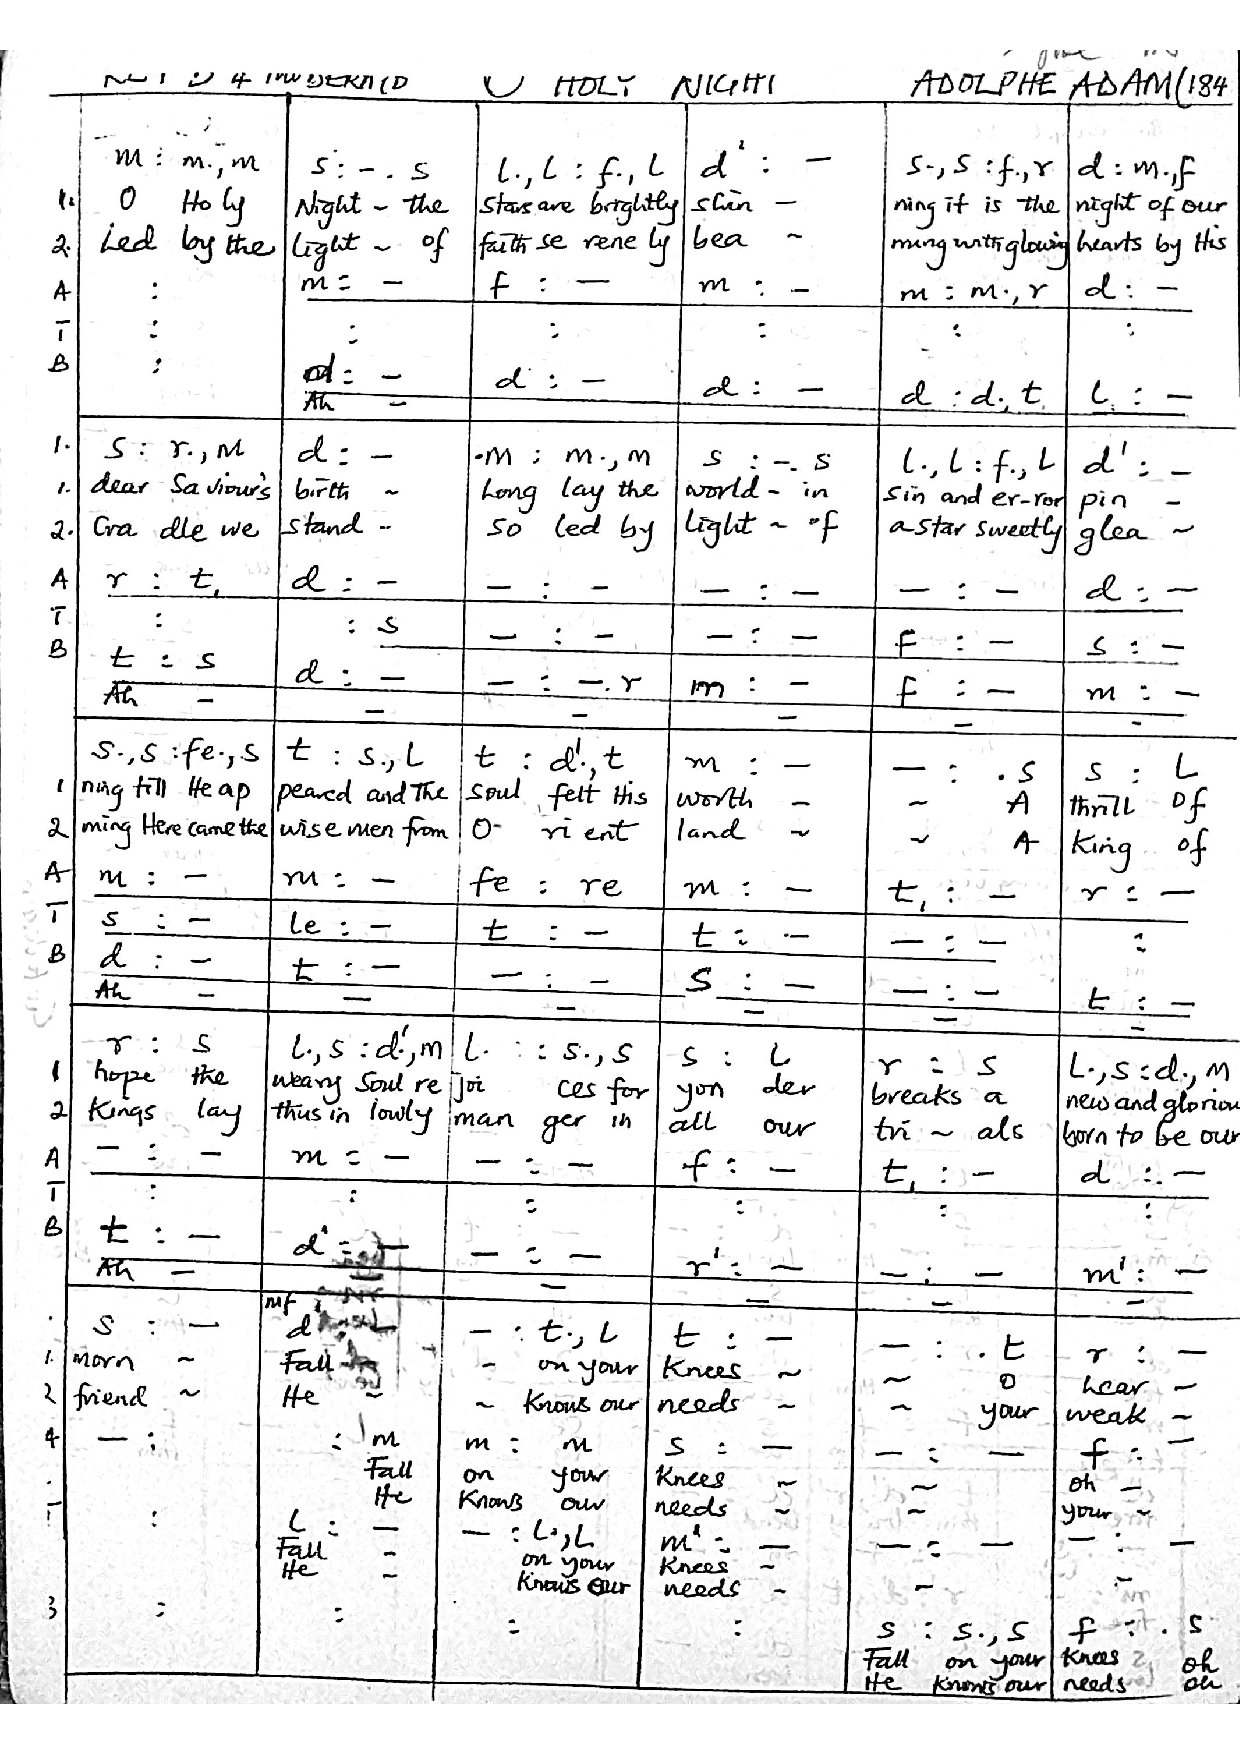 O HOLY NIGHT ADOLPHE ADAM (184
m : m.,m s : -. s l., l : f., l d' : - s., s : f., r d : m., f
1. O Holy Night ~ the stars are brightly shin - ning it is the night of our
2. Led by the light ~ of faith se rene ly bea ~ ming with glowing hearts by His
A : m : - f : - m : - m : m., r d : -
T : : : : : :
B : d : - d : - d : - d : d., t, l, : -
Ah -
1. s : r., m d : - .m : m., m s : -. s l., l : f., l d' : -
1. dear Saviour's birth ~ Long lay the world - in sin and er-ror pin -
2. Cra dle we stand - so led by light ~ of a star sweetly glea ~
A r : t, d : - - : - - : - - : - d : -
T : : s - : - - : - f : - s : -
B t : s d : - - : -. r m : - f : - m : -
Ah - - - - - -
s., s : fe., s t : s., l t : d'., t m : - - : . s s : l
1 ning till He ap peared and The soul felt His worth - ~ A thrill of
2 ming Here came the wise men from O- ri ent land ~ ~ A King of
A m : - m : - fe : re m : - t, : - r : -
T s : - le : - t : - t : - - : - :
B d : - t : - - : - s : - - : - t : -
Ah - - - - - -
r : s l., s : d'., m l. : s., s s : l r : s l., s : d., m
1 hope the weary Soul re joi ces for yon der breaks a new and gloriou
2 Kings lay thus in lowly man ger in all our tri ~ als born to be our
A - : - m : - - : - f : - t, : - d : -
T : : : : : :
B t : - d' : - - : - r' : - - : - m' : -
Ah - - - - - -
mf
s : - d' : - - : t., l t : - - : . t r : -
1. morn ~ Fall - - on your Knees ~ ~ O hear -
2 friend ~ He ~ ~ Knows our needs ~ ~ your weak ~
4 - : : m m : m s : - - : - f : -
Fall on your Knees ~ ~ oh -
He Knows our needs ~ ~ your ~
T : l : - - : l., l m' : - - : - - : -
Fall - on your Knees - - -
He - Knows our needs ~
3 : : : : s : s., s f : . s
Fall on your Knees oh
He Knows our needs oh